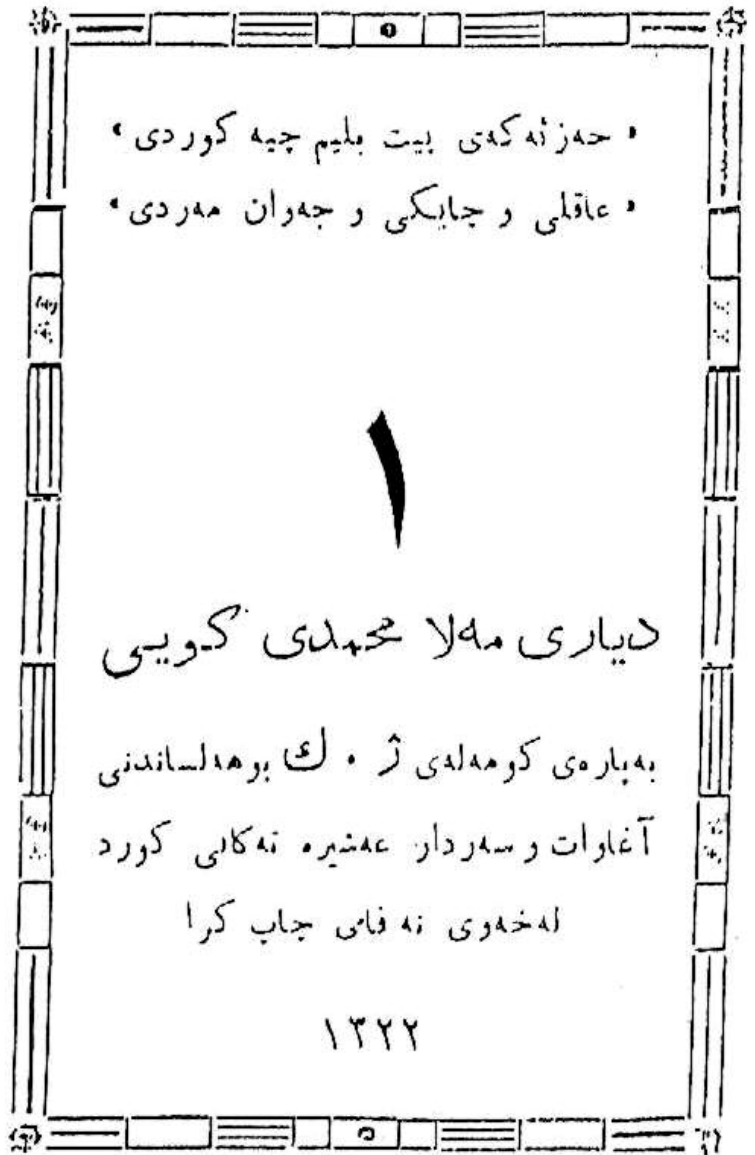 « حەزئەکەی بیت بلیم چیە کوردی »
« عاقلی و چابکی و جەوان مەردی »
١
دیاری مەلا محمدی کویی
بەپارەی کومەلەی ژ ٠ ك بوهەلساندنی
آغاوات و سەردار عەشیرە تەکانی کورد
لەخەوی نە فامی چاپ کرا
١٣٢٢